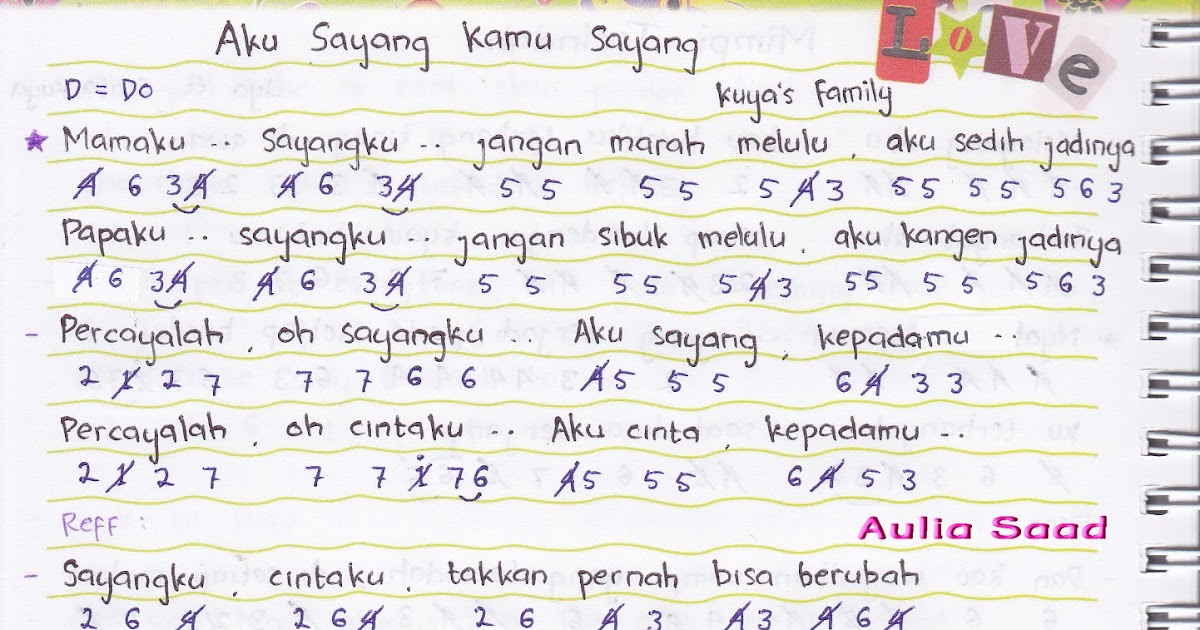 Aku Sayang Kamu Sayang
LOVe
D = Do
Kuya's Family
Mamaku .. Sayangku .. jangan marah melulu , aku sedih jadinya
4̸ 6 3 4̸ 4̸ 6 3 4̸ 5 5 5 5 5 4̸ 3 5 5 5 5 5 6 3
Papaku .. sayangku .. jangan sibuk melulu . aku kangen jadinya
4̸ 6 3 4̸ 4̸ 6 3 4̸ 5 5 5 5 5 4̸ 3 5 5 5 5 5 6 3
- Percayalah , oh sayangku .. Aku sayang , kepadamu ..
2 1̸ 2 7 7 7 6 6 4̸ 5 5 5 6 4̸ 3 3
Percayalah , oh cintaku .. Aku cinta , kepadamu ..
2 1̸ 2 7 7 7 1̸̇ 7 6 4̸ 5 5 5 6 4̸ 5 3
Reff :
Aulia Saad
- Sayangku , cintaku , takkan pernah bisa berubah
2 6 4̸ 2 6 4̸ 2 6 4̸ 3 4̸ 3 4̸ 6 4̸